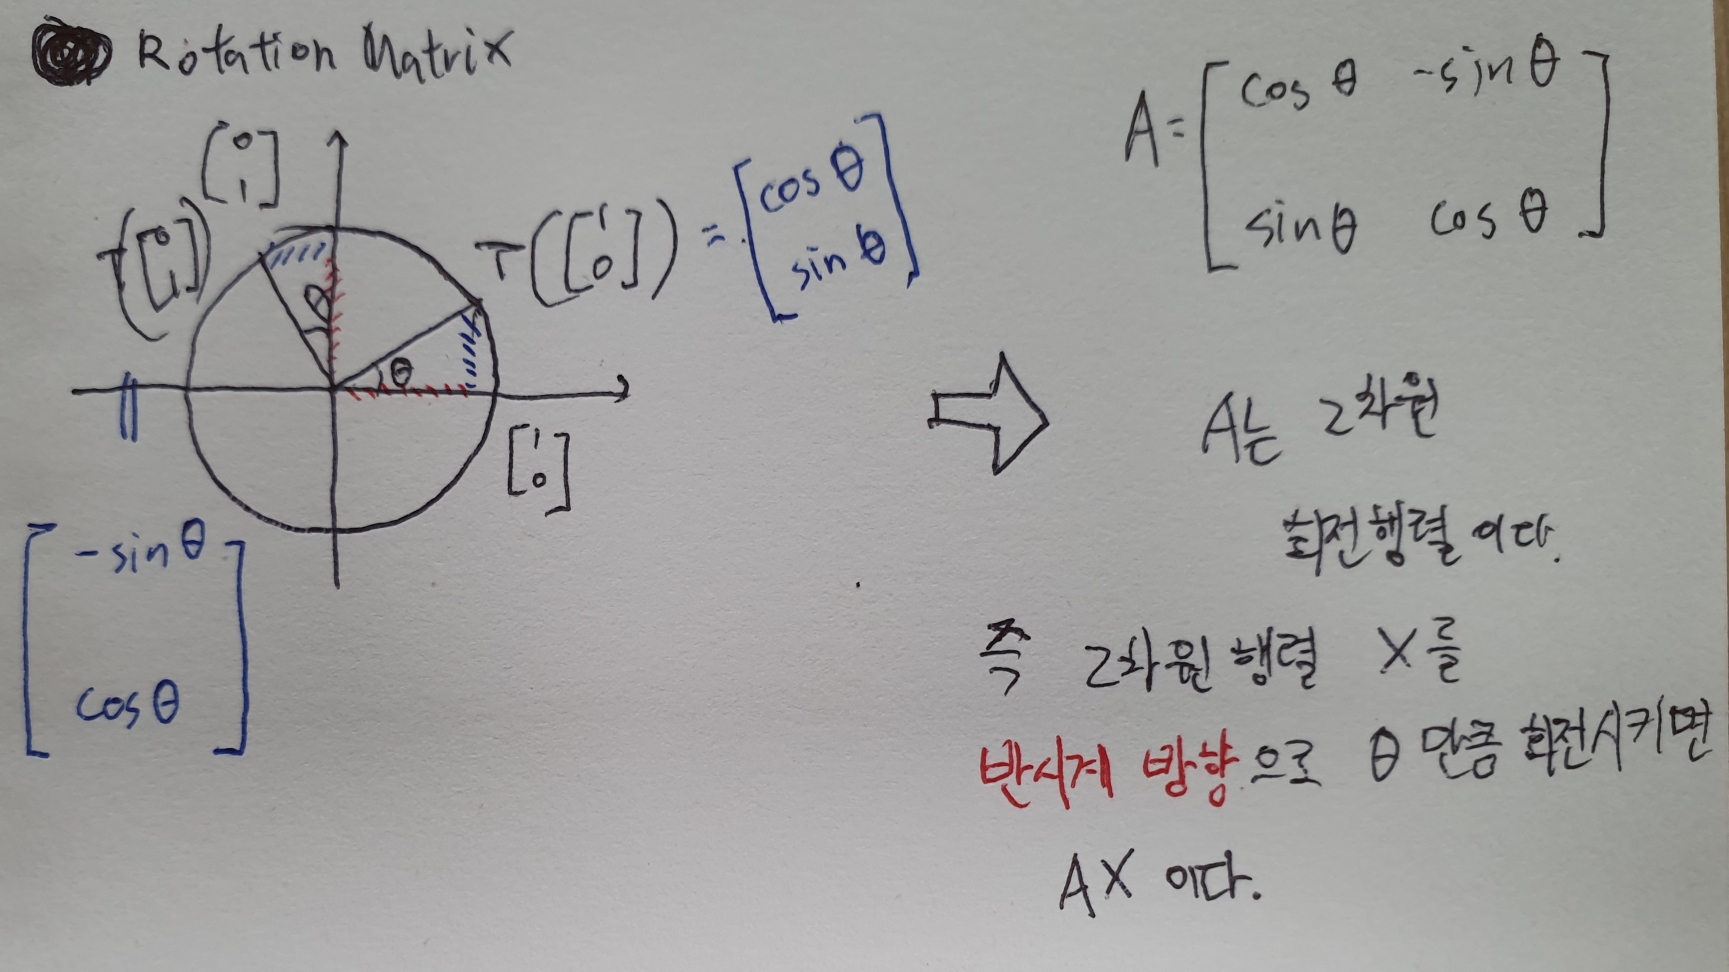 Rotation Matrix
[0
1]
T([0
1])
T([1
0]) = [cos θ
sin θ]
θ
θ
[1
0]
||
[-sin θ
cos θ]
A = [cos θ -sin θ
sin θ cos θ]
A는 2차원
회전행렬 이다.
즉 2차원 행렬 X를
반시계 방향으로 θ 만큼 회전시키면
AX 이다.